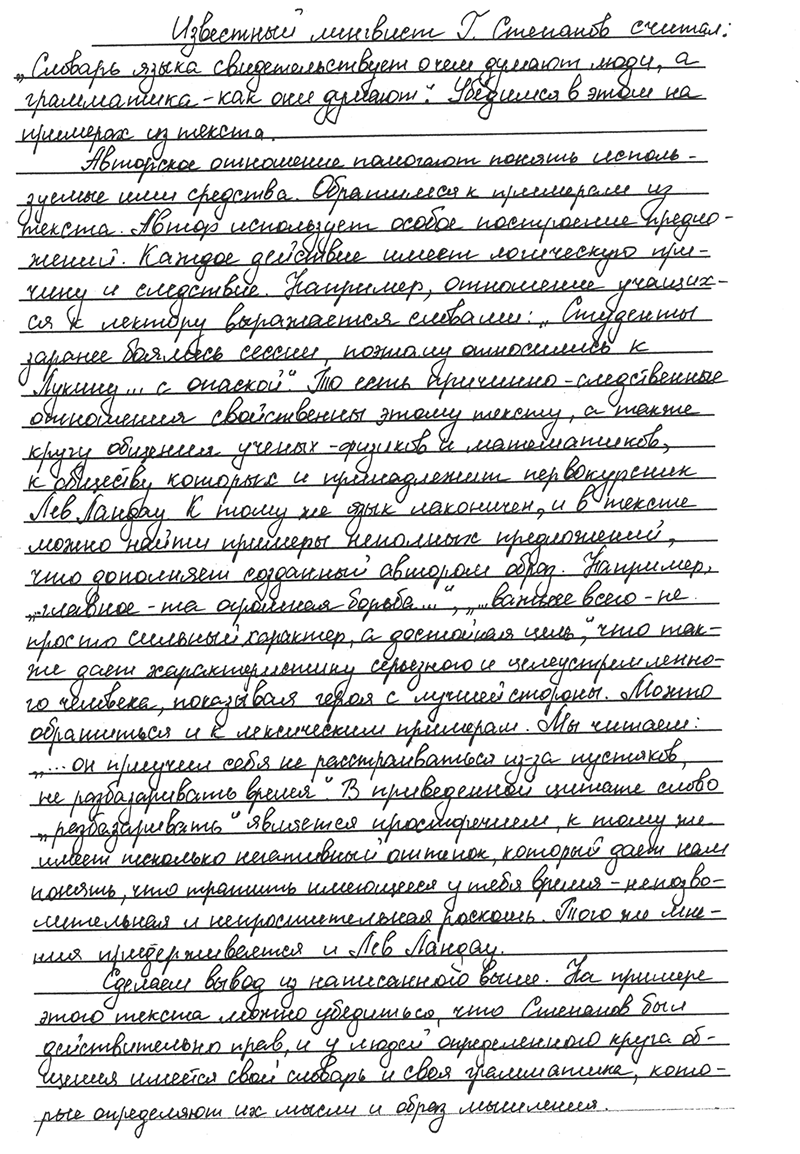 Известный лингвист Г. Степанов считал:
„Словарь языка свидетельствует о чем думают люди, а
грамматика - как они думают“. Убедимся в этом на
примерах из текста.
Авторское отношение помогают понять исполь-
зуемые ими средства. Обратимся к примерам из
текста. Автор использует особое построение предло-
жений. Каждое действие имеет логическую при-
чину и следствие. Например, отношение учащих-
ся к лектору выражается словами: „Студенты
заранее боялись сессии, поэтому относились к
Лукину... с опаской“. То есть причинно-следственные
отношения свойственны этому тексту, а также
кругу общения ученых-физиков и математиков,
к обществу которых и принадлежит первокурсник
Лев Ландау. К тому же язык лаконичен, и в тексте
можно найти примеры неполных предложений,
что дополняет созданный автором образ. Например,
„главное - та огромная борьба...“, „...важнее всего - не
просто сильный характер, а достойная цель“, что так-
же дает характеристику серьезного и целеустремленно-
го человека, показывая героя с лучшей стороны. Можно
обратиться и к лексическим примерам. Мы читаем:
„...он приучил себя не расстраиваться из-за пустяков,
не разбазаривать время“. В приведенной цитате слово
„разбазаривать“ является просторечием, к тому же
имеет несколько негативный оттенок, который дает нам
понять, что тратить имеющееся у тебя время - непозво-
лительная и непростительная роскошь. Того же мне-
ния придерживается и Лев Ландау.
Сделаем вывод из написанного выше. На примере
этого текста можно убедиться, что Степанов был
действительно прав, и у людей определенного круга об-
щения имеется свой словарь и своя грамматика, кото-
рые определяют их мысли и образ мышления.